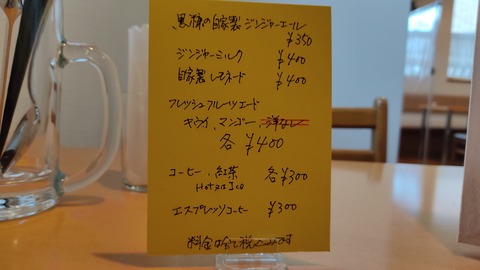 黒糖の自家製ジンジャーエール
¥350
ジンジャーミルク ¥400
自家製レモネード ¥400
フレッシュフルーツエード
キウイ、マンゴー、洋なし
各 ¥400
コーヒー、紅茶 各¥300
Hot or Ice
エスプレッソコーヒー ¥300
料金は全て税込みです